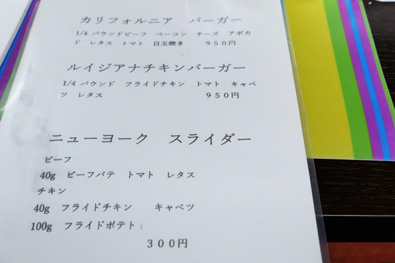 カリフォルニア　バーガー
1/4 パウンドビーフ　ベーコン　チーズ　アボカ
ド　レタス　トマト　目玉焼き　９５０円
ルイジアナチキンバーガー
1/4 パウンド　フライドチキン　トマト　キャベ
ツ　レタス　９５０円
ニューヨーク　スライダー
ビーフ
40g　ビーフパテ　トマト　レタス
チキン
40g　フライドチキン　キャベツ
100g　フライドポテト
３００円